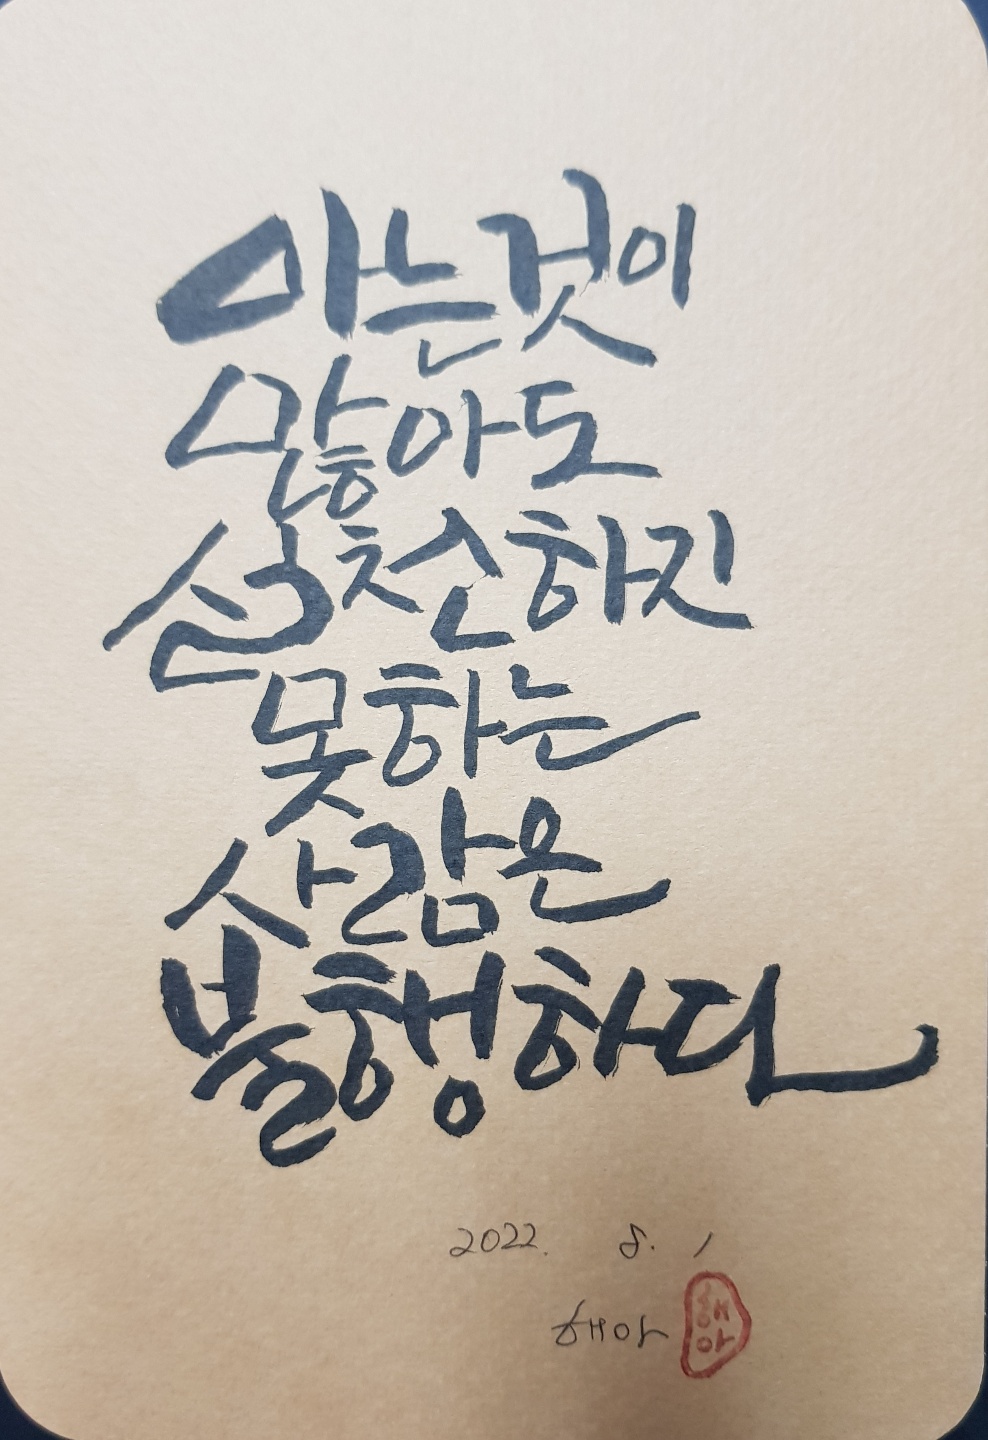 아는것이
많아도
실천하지
못하는
사람은
불행하다
2022. 8. 1
해아
해아